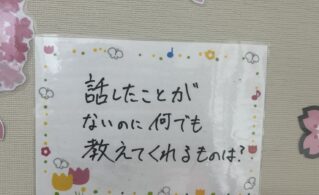 話したことが
ないのに何でも
教えてくれるものは?